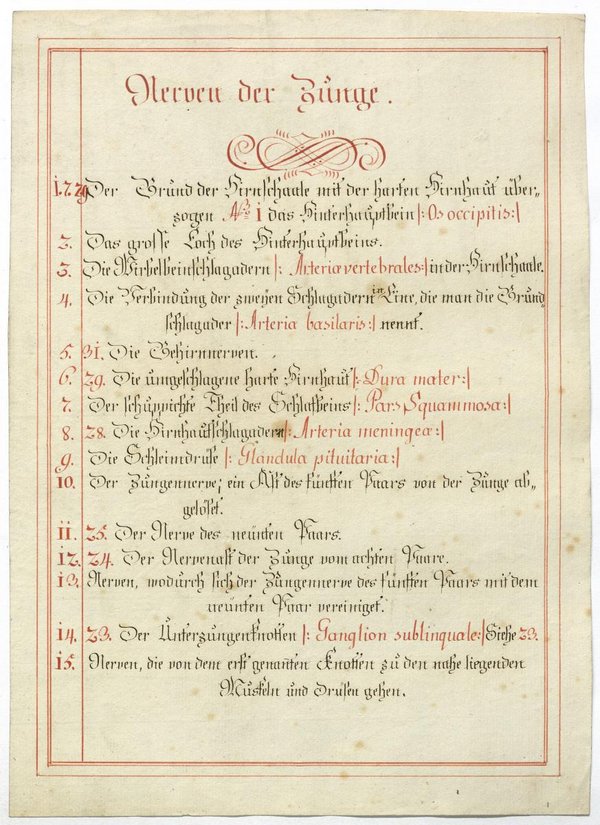 Nerven der Zunge.
1. 7. 29. Der Grund der Hirnschaale mit der harten Hirnhaut über-
zogen das Hinterhauptbein |: Os occipitis :|
2. Das grosse Loch des Hinterhauptbeins.
3. Die Wirbelbeinschlagadern |: Arteria vertebrales :| in der Hirnschaale.
4. Die Verbindung der zweyen Schlagadern in Eine, die man die Grund-
schlagader |: Arteria basilaris :| nennt.
5. 31. Die Gehirnnerven.
6. 29. Die umgeschlagene harte Hirnhaut |: Dura mater :|
7. Der schuppichte Theil des Schlafbeins |: Pars Squammosa :|
8. 28. Die Hirnhautschlagadern |: Arteria meningeæ :|
9. Die Schleimdrüse |: Glandula pituitaria :|
10. Der Zungennerve; ein Ast des fünften Paars von der Zunge ab-
gelöset.
11. 25. Der Nerve des neunten Paars.
12. 24. Der Nervenast der Zunge vom achten Paare.
13. Nerven, wodurch sich der Zungennerve des fünften Paars mit dem
neunten Paar vereiniget.
14. 23. Der Unterzungenknotten |: Ganglion sublinquale :| Siehe 23.
15. Nerven, die von dem erst genanten Knotten zu den nahe liegenden
Muskeln und Drüsen gehen.